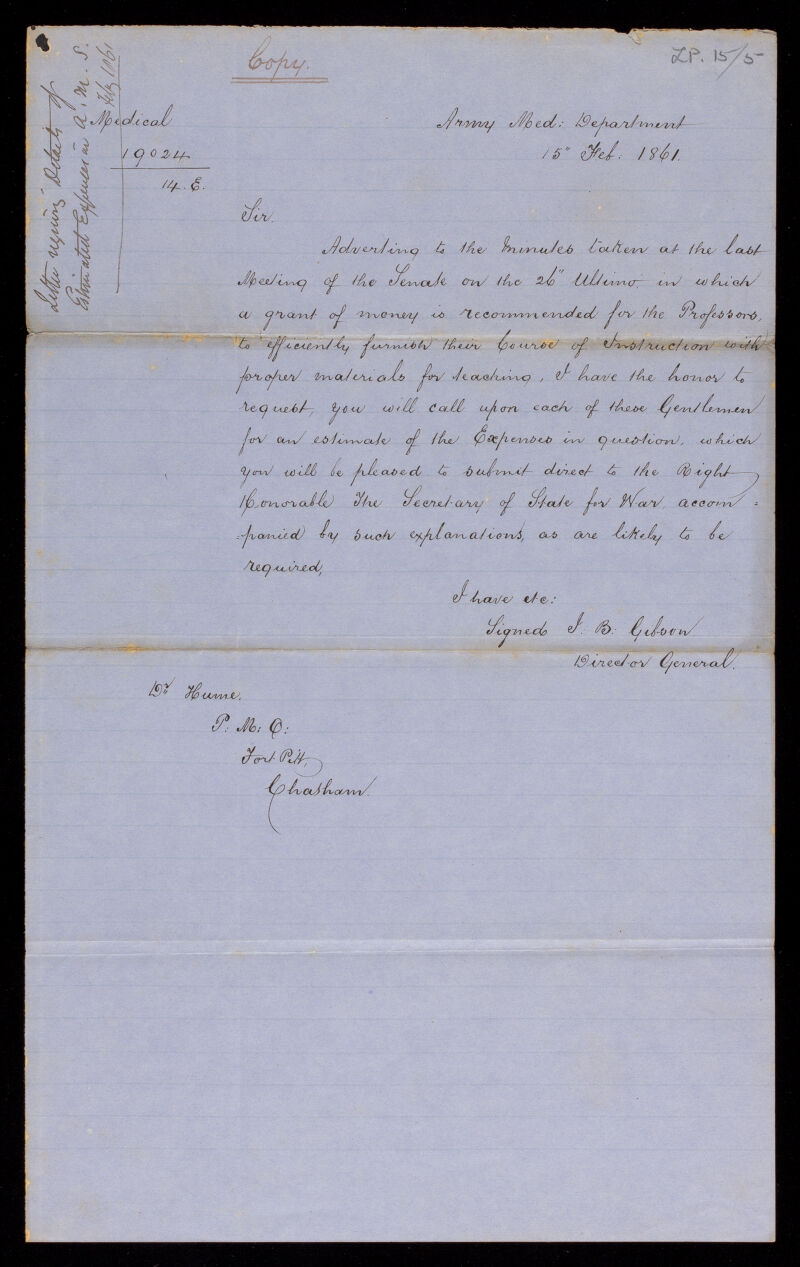 Copy.
LP. 15/5
Letter requiring Details of
Estimated Expenses in A. M. S.
Feby 1861
Medical
19024
14. E.
Army Med: Department
15" Feb: 1861.
Sir.
Adverting to the Minutes taken at the last
Meeting of the Senate on the 26" Ultimo, in which
a grant of money is recommended for the Professors,
to efficiently furnish their Course of Instruction with
proper materials for teaching, I have the honor to
request, you will call upon each of these Gentlemen
for an estimate of the Expenses in question, which
you will be pleased to submit direct to the Right
Honorable The Secretary of State for War, accom =
=panied by such explanations, as are likely to be
required,
I have etc:
Signed J. B. Gibson
Director General.
Dr Hume.
P: M: O:
Fort Pitt,
Chatham.